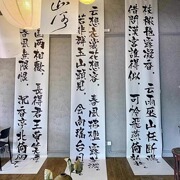 枝穠艷露凝香 雲雨巫山枉斷
借問漢宮誰得似 可憐飛燕倚
雲想衣裳花想容 春風拂檻露華濃
非群玉山頭見 會向瑤台月
國兩相歡 長得君王帶笑
春風無限恨 亭北倚